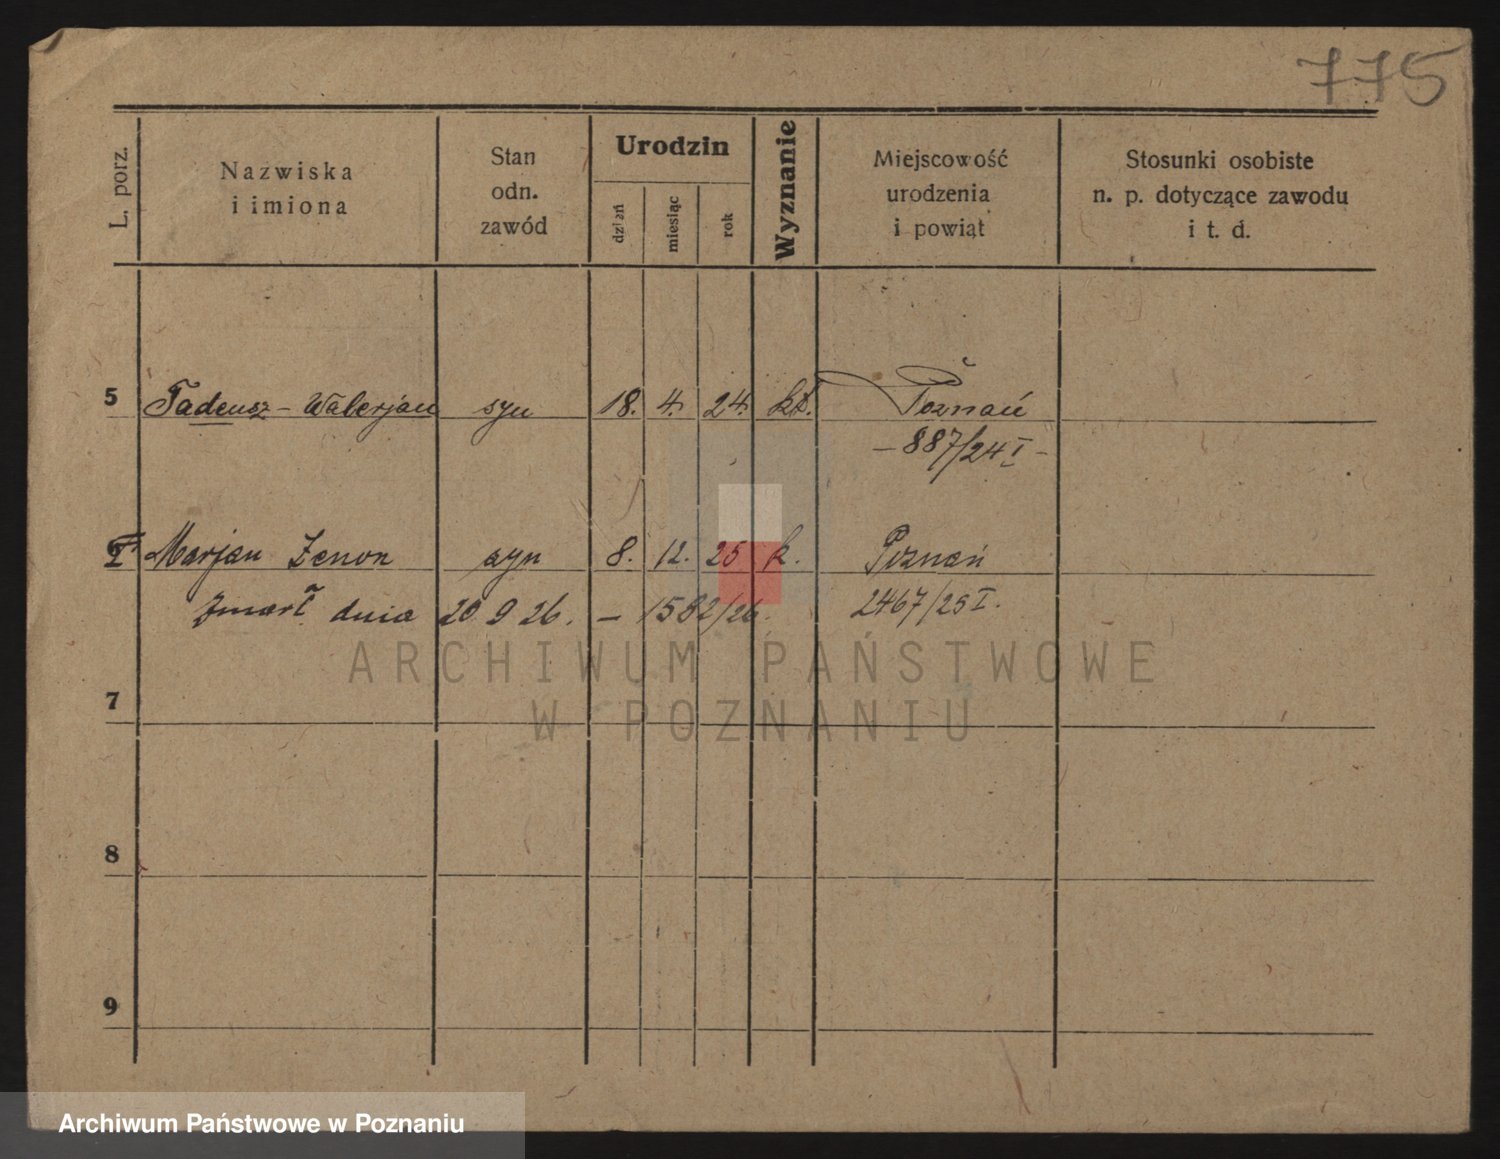 775
L. porz.
Nazwiska
i imiona
Stan
odn.
zawód
Urodzin
dzień
miesiąc
rok
Wyznanie
Miejscowość
urodzenia
i powiat
Stosunki osobiste
n. p. dotyczące zawodu
i t. d.
5 Tadeusz - Walerjan syn 18. 4. 24. kt. Poznań
- 887/24 I -
Marjan Zenon syn 8. 12. 25 k. Poznań
zmarł dnia 20. 9 26. - 1582/26. 2467/25 I.
ARCHIWUM PAŃSTWOWE
W POZNANIU
7
8
9
Archiwum Państwowe w Poznaniu